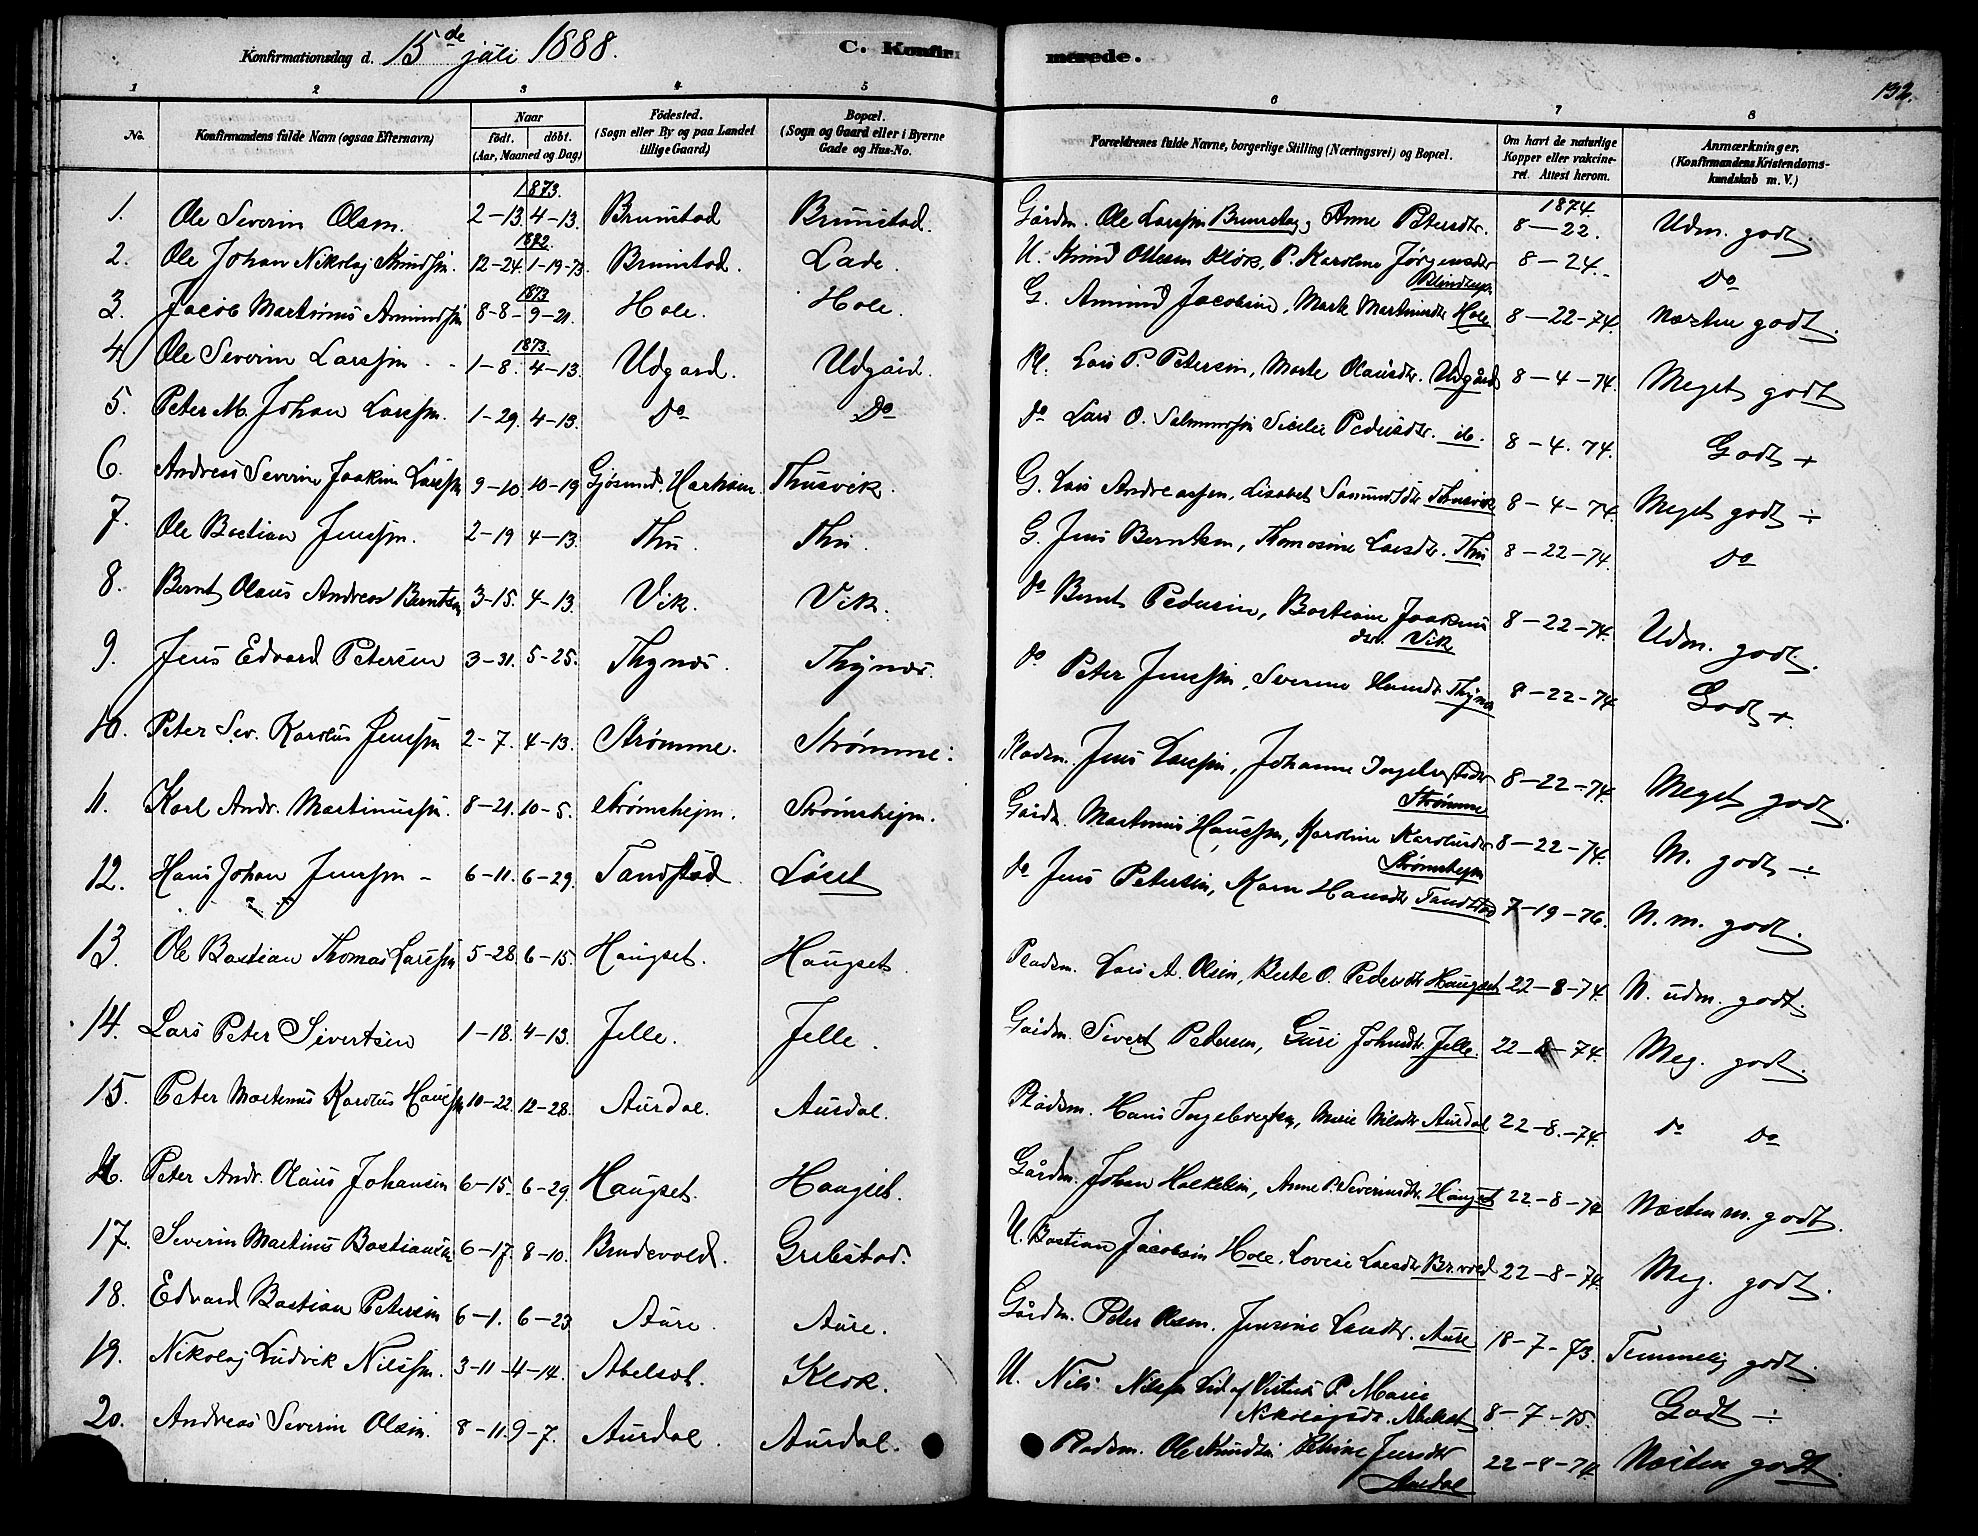 Konfirmationsdag d. 15de juli 1888. C. Konfirmerede. 132.
1 2 3 4 5 6 7 8
No. Konfirmandens fulde Navn (ogsaa Efternavn) Naar født. døbt. (Aar, Maaned og Dag) Fødested. (Sogn eller By og paa Landet tillige Gaard) Bopæl. (Sogn og Gaard eller i Byerne Gade og Hus-No. Forældrenes fulde Navne, borgerlige Stilling (Næringsvei) og Bopæl. Om havt de naturlige Kopper eller vakcineret. Attest herom. Anmærkninger. (Konfirmandens Kristendomskundskab m. V.)
1873. 1874.
1. Ole Severin Olsen. 2-13. 4-13. Brunstad Brunstad. Gårdm. Ole Larssen Brunstad, Anne Petersdtr. 8-22. Udm. godt.
1872.
2. Ole Johan Nikolaj Knudssøn. 12-24. 1-19-73. Brunstad. Lade. U. Knud Olsen P. Karoline Jørgensdtr 8-24. Do
1873
3. Jacob Martinus Amundssøn 8-8- 9-21. Hole. Hole. G. Amund Jacobsen, Marte Martinusdtr Hole 8-22-74. Næsten godt.
1873.
4. Ole Severin Larssen 1-8. 4-13. Udgard. Udgård. Pl. Lars P. Petersen, Marte Olausdtr. Udgård 8-4-74. Meget godt
5. Peter M. Johan Larssen. 1-29. 4-13. Do Do do Lars O. Salmundssøn Sicilie Pedersdtr. ib. 8-4. 74. Godt +
6. Andreas Severin Joakim Larssen 9-10 10-19 Gjøsund. Harham. Thusvik. G. Lars Andreassen, Lisabet Thusvik 8-4-74. Meget godt ÷
7. Ole Bastian Jenssen. 2-19 4-13. Thu. Thu. G. Jens Berntsen, Thomasine Larsdtr. Thu 8-22-74. Do
8. Bernt Olaus Andreas Berntsen 3-15. 4-13. Vik. Vik. do Bernt Pedersen, Bastiane Joakimsdtr. Vik 8-22-74. Udm. godt.
9. Jens Edvard Petersen 3-31. 5-25. Thynes. Thynes. do Peter Jenssen, Severine Hansdtr Thynes 8-22-74 Godt +.
10. Peter Sev. Karolus Jenssen 2-7. 4-13. Strømme. Strømme. Pladsm. Jens Larssen, Johanne Ingebrigtsdtr Strømme 8-22-74. Meget godt.
11. Karl Andr. Martinussen. 8-21. 10-5. Strømshejm. Strømshejm. Gårdm. Martinus Hanssen, Karoline Karolusdtr Strømshejm 8-22-74. M. godt ÷
12. Hans Johan Jenssen - 6-11. 6-29. Tandstad Løset do Jens Petersen, Karn Hansdtr Tandstad 7-19-76. N. m. godt.
13. Ole Bastian Thomas Larssen 5-28. 6-15. Haugset. Haugset. Pladsm. Lars A. Olsen, Berte O. Pedersdtr Haugset 22-8-74. N. udm. godt.
14. Lars Peter Sivertsen 1-18. 4-13. Jelle. Jelle. Gårdm. Sivert Petersen, Guri Johnsdtr. Jelle. 22-8-74. Meg. godt.
15. Peter Martinus Karolus Hanssen 10-22. 12-28. Aurdal. Aurdal. Pladsm. Hans Ingebrigtsen, Marie Nilsdtr Aurdal 22-8.-74. do do
16. Peter Andr. Olaus Johansen 6-15. 6-29. Haugset. Haugset. Gårdm. Johan Anne P. Severinsdtr. Haugset 22-8-74 Næsten m. godt.
17. Severin Martinus Bastiansen 6-17. 8-10. Brudevold. Grebstad. U. Bastian Jacobsen Hole. Lovise Larsdtr Br.vold 22-8-74. Meg. godt.
18. Edvard Bastian Petersen 6-1. 6-23 Aure. Aure. Gårdm. Peter Olsen. Jensine Larsdtr. Aure 18-7-73. Temmelig godt.
19. Nikolaj Ludvik Nilssen. 3-11- 4-14. Abelset. Klok. U. Nils Nilssen P. Marie Nikolajsdr. Abelset 8-7-75. Godt ÷
20. Andreas Severin Olsen. 8-11. 9-7. Aurdal. Aurdal. Pladsm. Ole Knudsen Petrine Jensdtr Aurdal 22-8-74. Næsten godt.